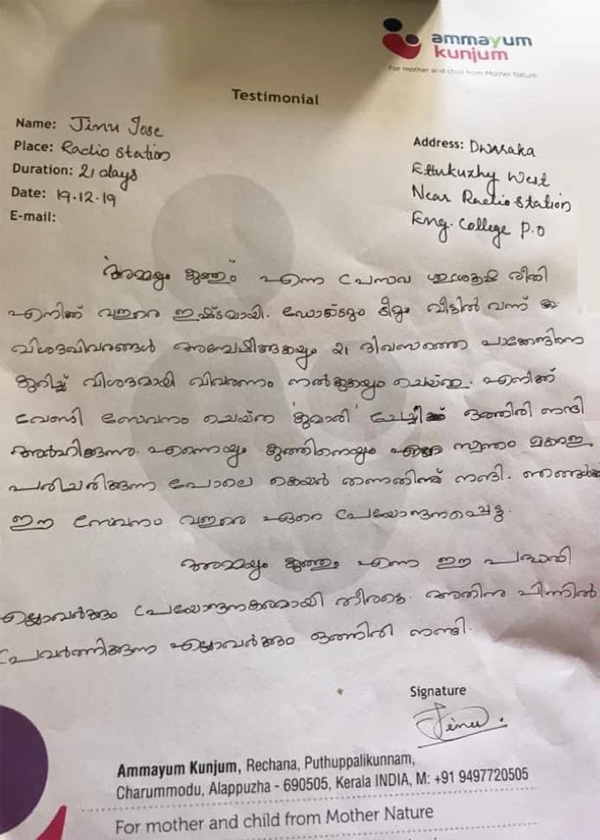 ammayum
kunjum
For mother and child from Mother Nature
Testimonial
Name: Jinu Jose
Place: Radio Station
Duration: 21 days
Date: 19.12.19
E-mail:
Address: Dwaraka
Ettukuzhy West
Near Radio Station
Eng. College P.O
"അമ്മയും കുഞ്ഞും" എന്ന പ്രസവ ശുശ്രൂഷ രീതി
എനിക്ക് വളരെ ഇഷ്ടമായി. ഡോക്ടറും ടീമും വീട്ടിൽ വന്ന്
വിശദവിവരങ്ങൾ അന്വേഷിക്കുകയും 21 ദിവസത്തെ പാക്കേജിനെ
കുറിച്ച് വിശദമായി വിവരണം നൽകുകയും ചെയ്തു. എനിക്ക്
വേണ്ടി സേവനം ചെയ്ത 'കുമാരി' ചേച്ചിക്ക് ഒത്തിരി നന്ദി
അർഹിക്കുന്നു. എന്നെയും കുഞ്ഞിനെയും സ്വന്തം മക്കളെ
പരിചരിക്കുന്ന പോലെ കെയർ തന്നതിന് നന്ദി. ഞങ്ങൾക്ക്
ഈ സേവനം വളരെ ഏറെ പ്രയോജനപ്പെട്ടു.
അമ്മയും കുഞ്ഞും എന്ന ഈ പദ്ധതി
എല്ലാവർക്കും പ്രയോജനകരമായി തീരട്ടെ. അതിനു പിന്നിൽ
പ്രവർത്തിക്കുന്ന എല്ലാവർക്കും ഒത്തിരി നന്ദി.
Signature
Jinu.
Ammayum Kunjum, Rechana, Puthuppalikunnam,
Charummodu, Alappuzha - 690505, Kerala INDIA, M: +91 9497720505
For mother and child from Mother Nature